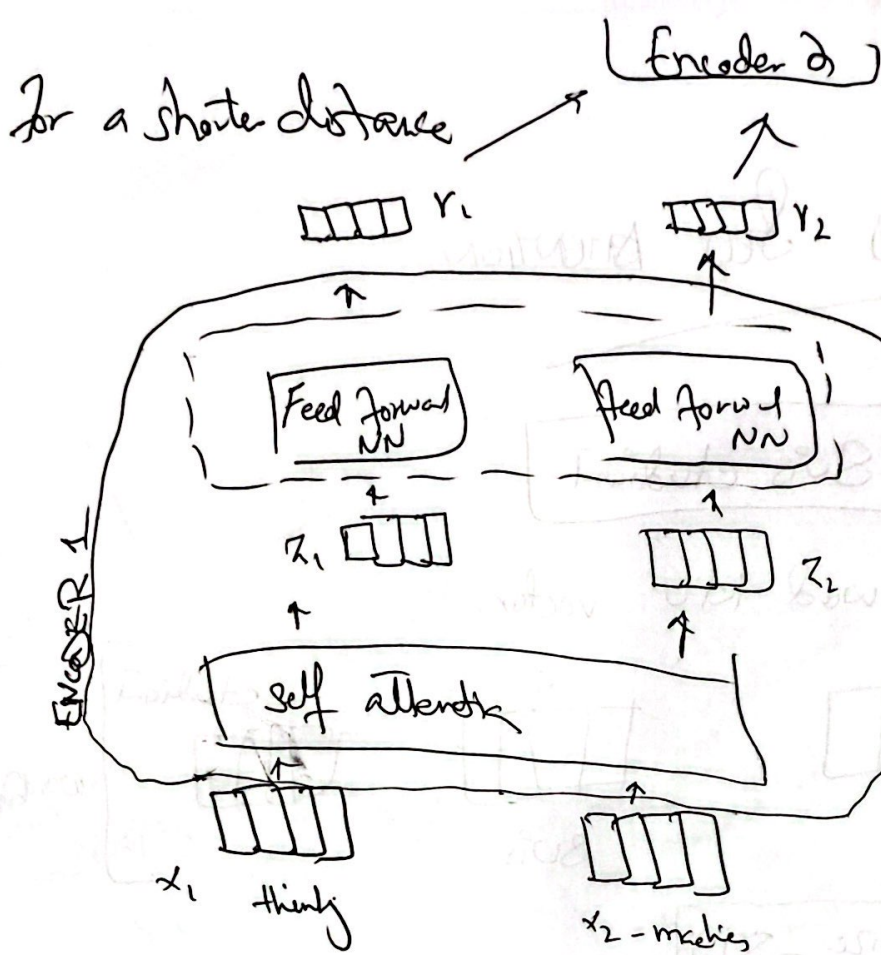 Encoder 2
For a shorter distance
r₁
r₂
Feed Forward
NN
Feed Forward
NN
Z₁
Z₂
ENCODER 1
self attention
x₁
thinking
x₂ - machines